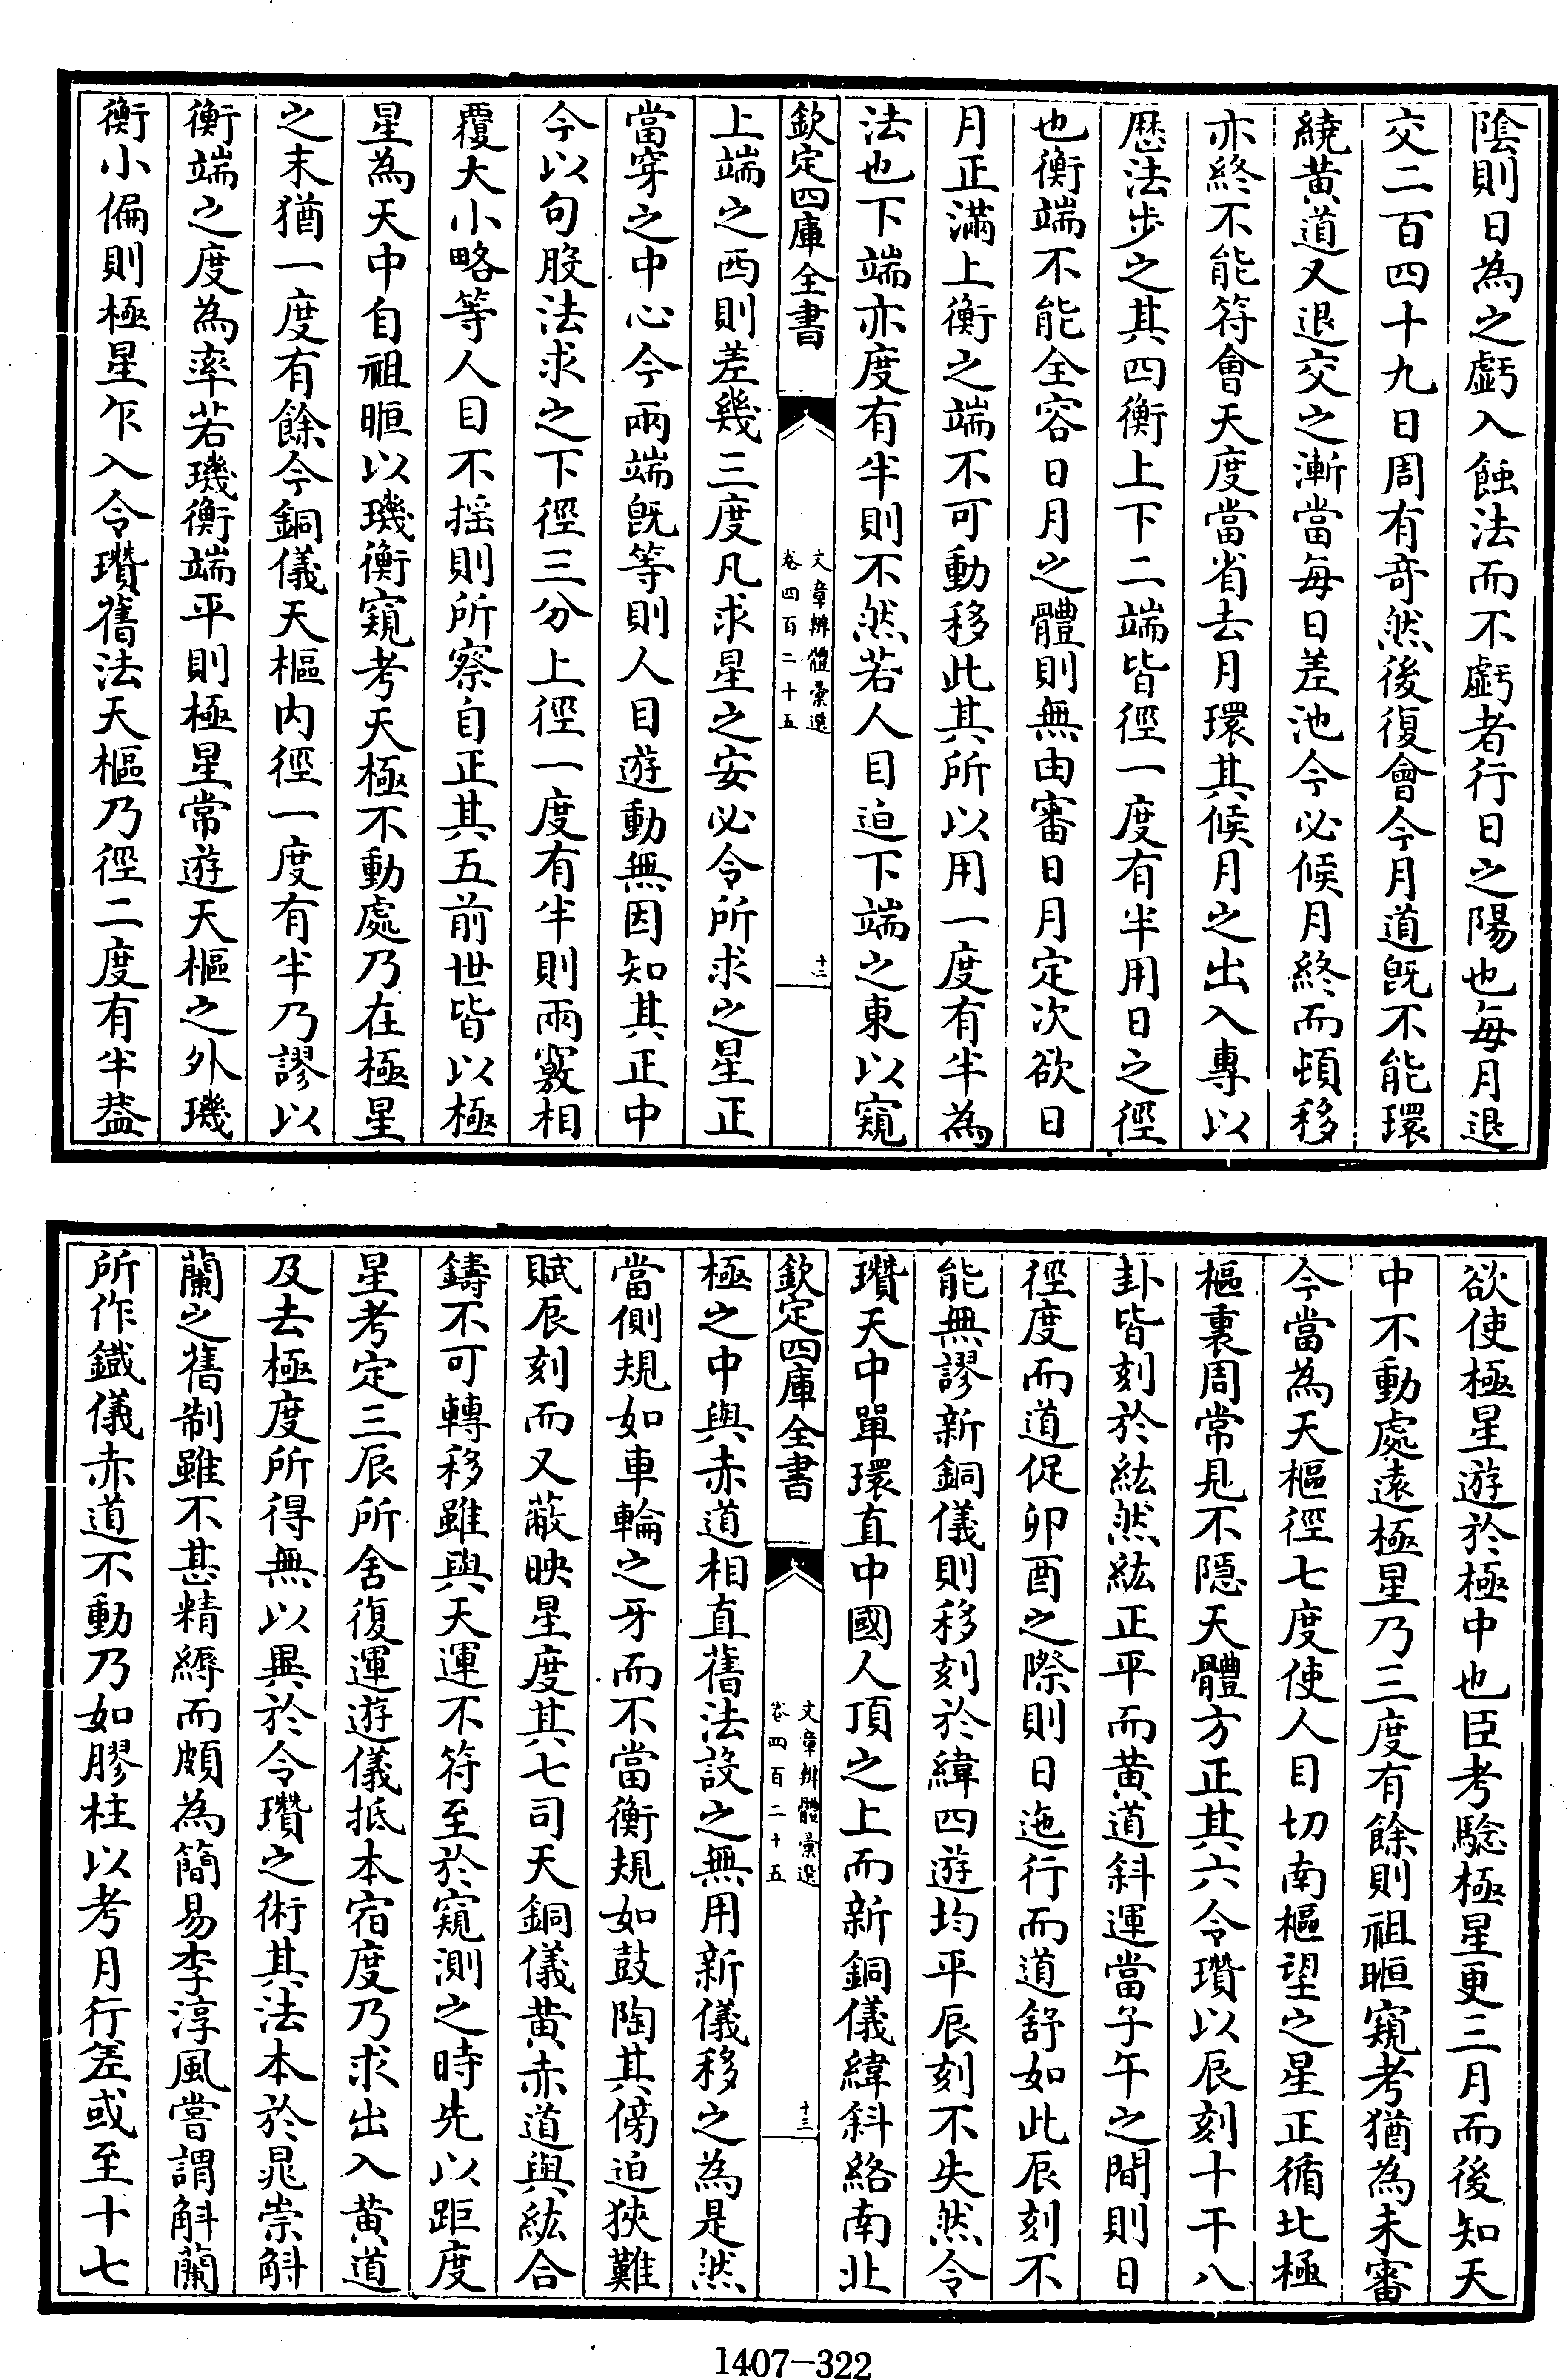 陰則日為之虧入蝕法而不虧者行日之陽也每月退
交二百四十九日周有奇然後復會今月道既不能環
繞黄道又退交之漸當每日差池今必候月終而頓移
亦終不能符會天度當省去月環其候月之出入專以
厯法步之其四衡上下二端皆徑一度有半用日之徑
也衡端不能全容日月之體則無由審日月定次欲日
月正滿上衡之端不可動移此其所以用一度有半為
法也下端亦度有半則不然若人目迫下端之東以窺
欽定四庫全書
文章辨體彚選
卷四百二十五
十二
上端之西則差幾三度凡求星之安必令所求之星正
當穿之中心今兩端既等則人目遊動無因知其正中
今以句股法求之下徑三分上徑一度有半則兩竅相
覆大小略等人目不摇則所察自正其五前世皆以極
星為天中自祖暅以璣衡窺考天極不動處乃在極星
之末猶一度有餘今銅儀天樞内徑一度有半乃謬以
衡端之度為率若璣衡端平則極星常遊天樞之外璣
衡小偏則極星乍入令瓚舊法天樞乃徑二度有半葢
欲使極星遊於極中也臣考驗極星更三月而後知天
中不動處逺極星乃三度有餘則祖暅窺考猶為未審
今當為天樞徑七度使人目切南樞望之星正循北極
樞裏周常見不隱天體方正其六令瓚以辰刻十干八
卦皆刻於紘然紘正平而黄道斜運當子午之間則日
徑度而道促卯酉之際則日迤行而道舒如此辰刻不
能無謬新銅儀則移刻於緯四遊均平辰刻不失然令
瓚天中單環直中國人頂之上而新銅儀緯斜絡南北
欽定四庫全書
文章辨體彚選
卷四百二十五
十三
極之中與赤道相直舊法設之無用新儀移之為是然
當側規如車輪之牙而不當衡規如鼓陶其傍迫狹難
賦辰刻而又蔽映星度其七司天銅儀黄赤道與紘合
鑄不可轉移雖與天運不符至於窺測之時先以距度
星考定三辰所舍復運遊儀抵本宿度乃求出入黄道
及去極度所得無以異於令瓚之術其法本於晁崇斛
蘭之舊制雖不甚精縟而頗為簡易李淳風嘗謂斛蘭
所作鐵儀赤道不動乃如膠柱以考月行差或至十七
1407-322